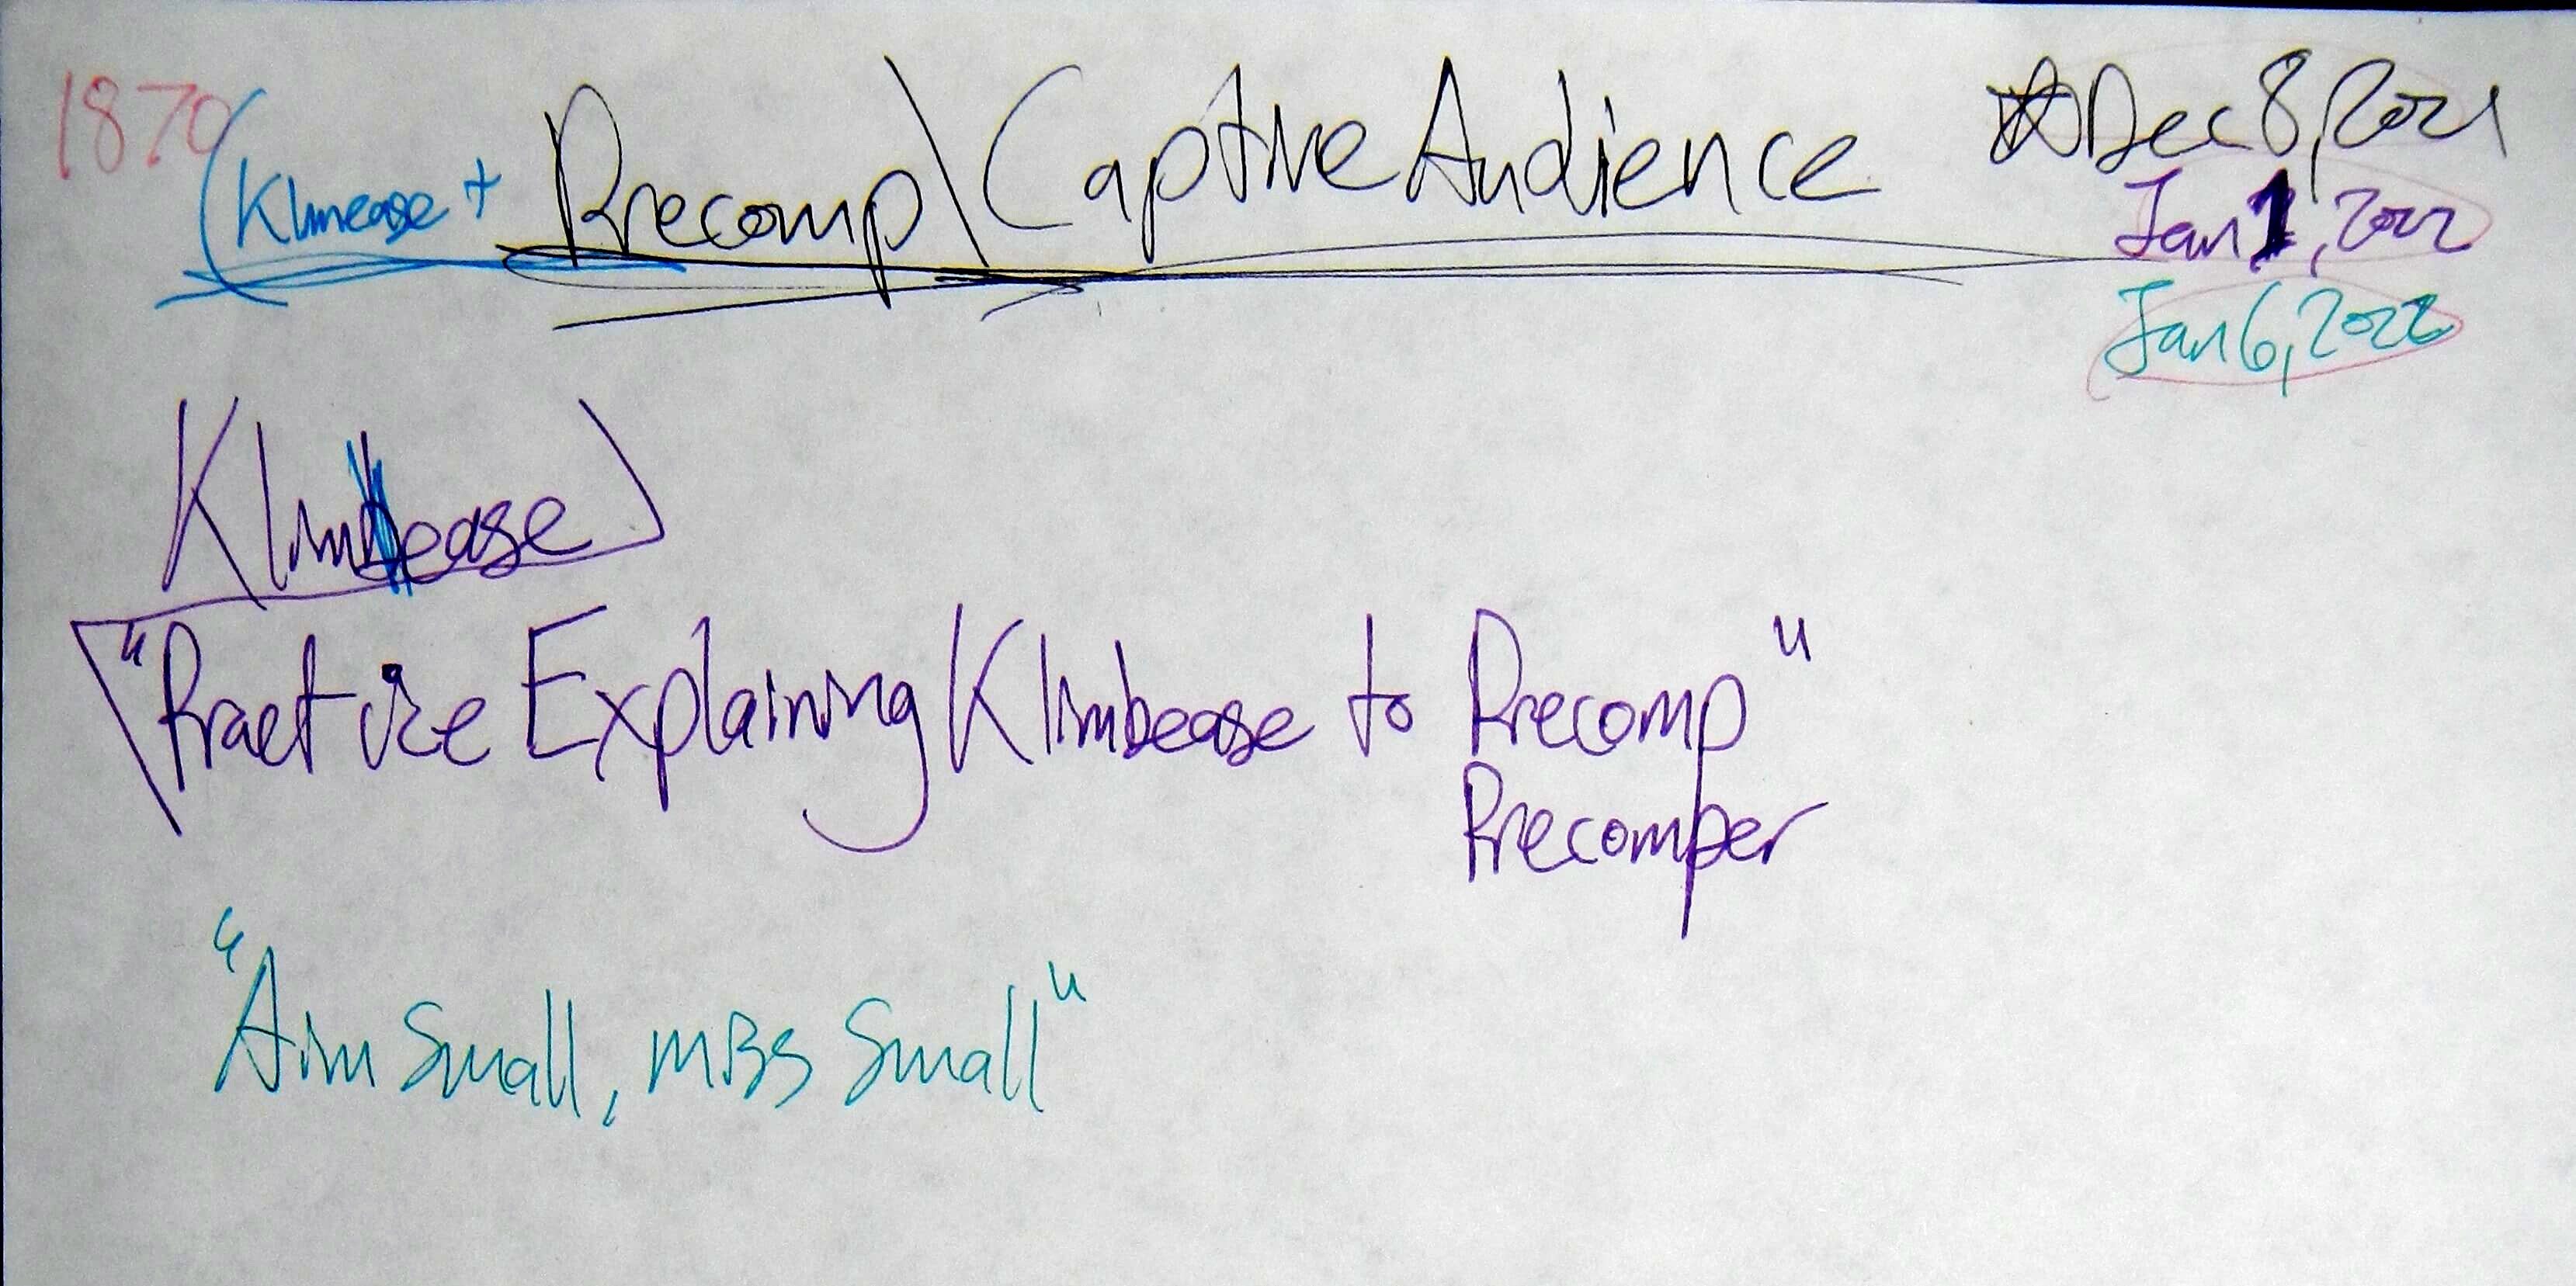 1870
(Klmease + Precomp\ Captive Audience
☆ Dec 8, 2021
Jan 1, 2022
Jan 6, 2022
"Practice Explaining Klimbease to Precomp"
Precomper
"Aim Small, miss Small"